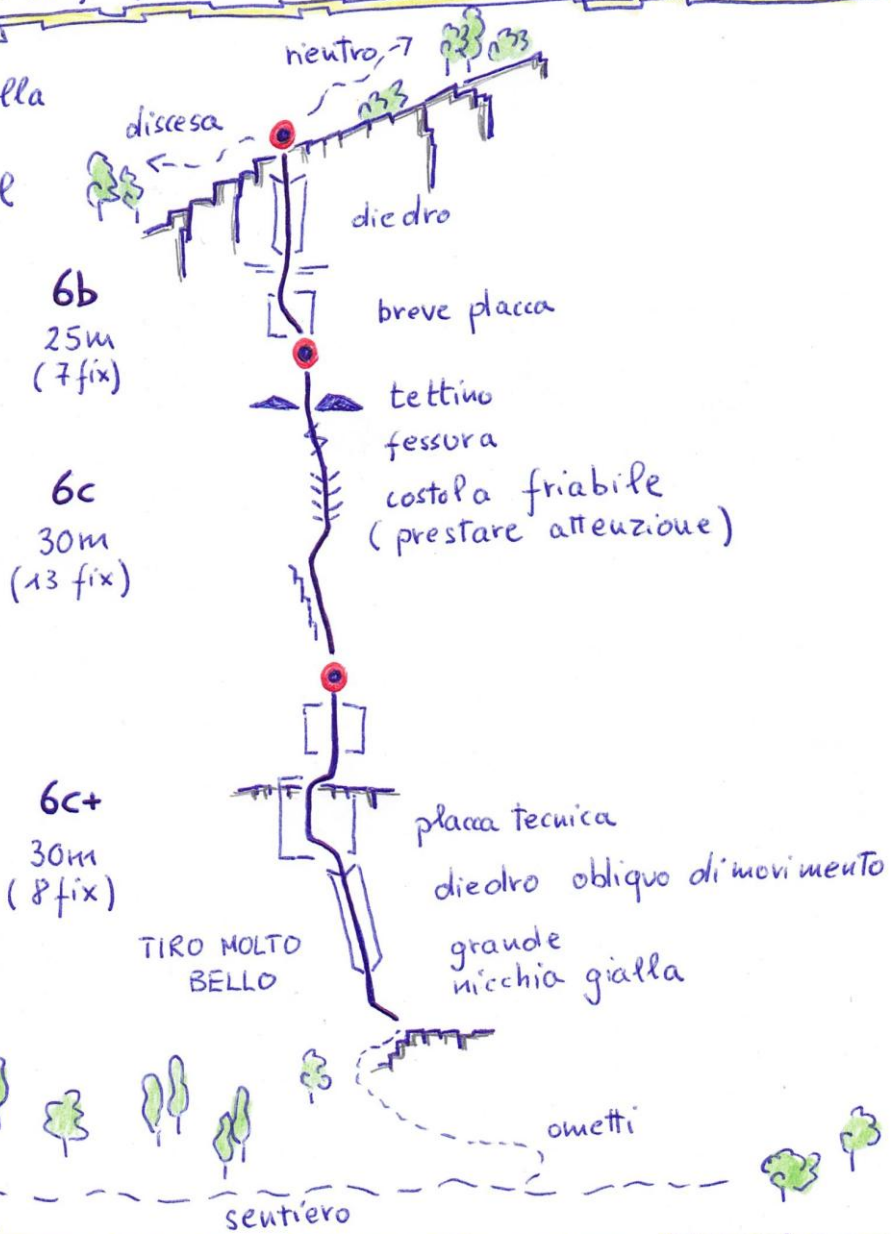 rientro
lla
discesa
e
diedro
6b
25m
(7 fix)
breve placca
tettino
fessura
6c
30m
(13 fix)
costola friabile
(prestare attenzione)
6c+
30m
(8 fix)
placca tecnica
diedro obliquo di movimento
TIRO MOLTO
BELLO
grande
nicchia gialla
ometti
sentiero